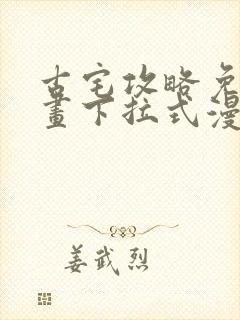 古宅攻略免
畫下拉式漫
姜武烈